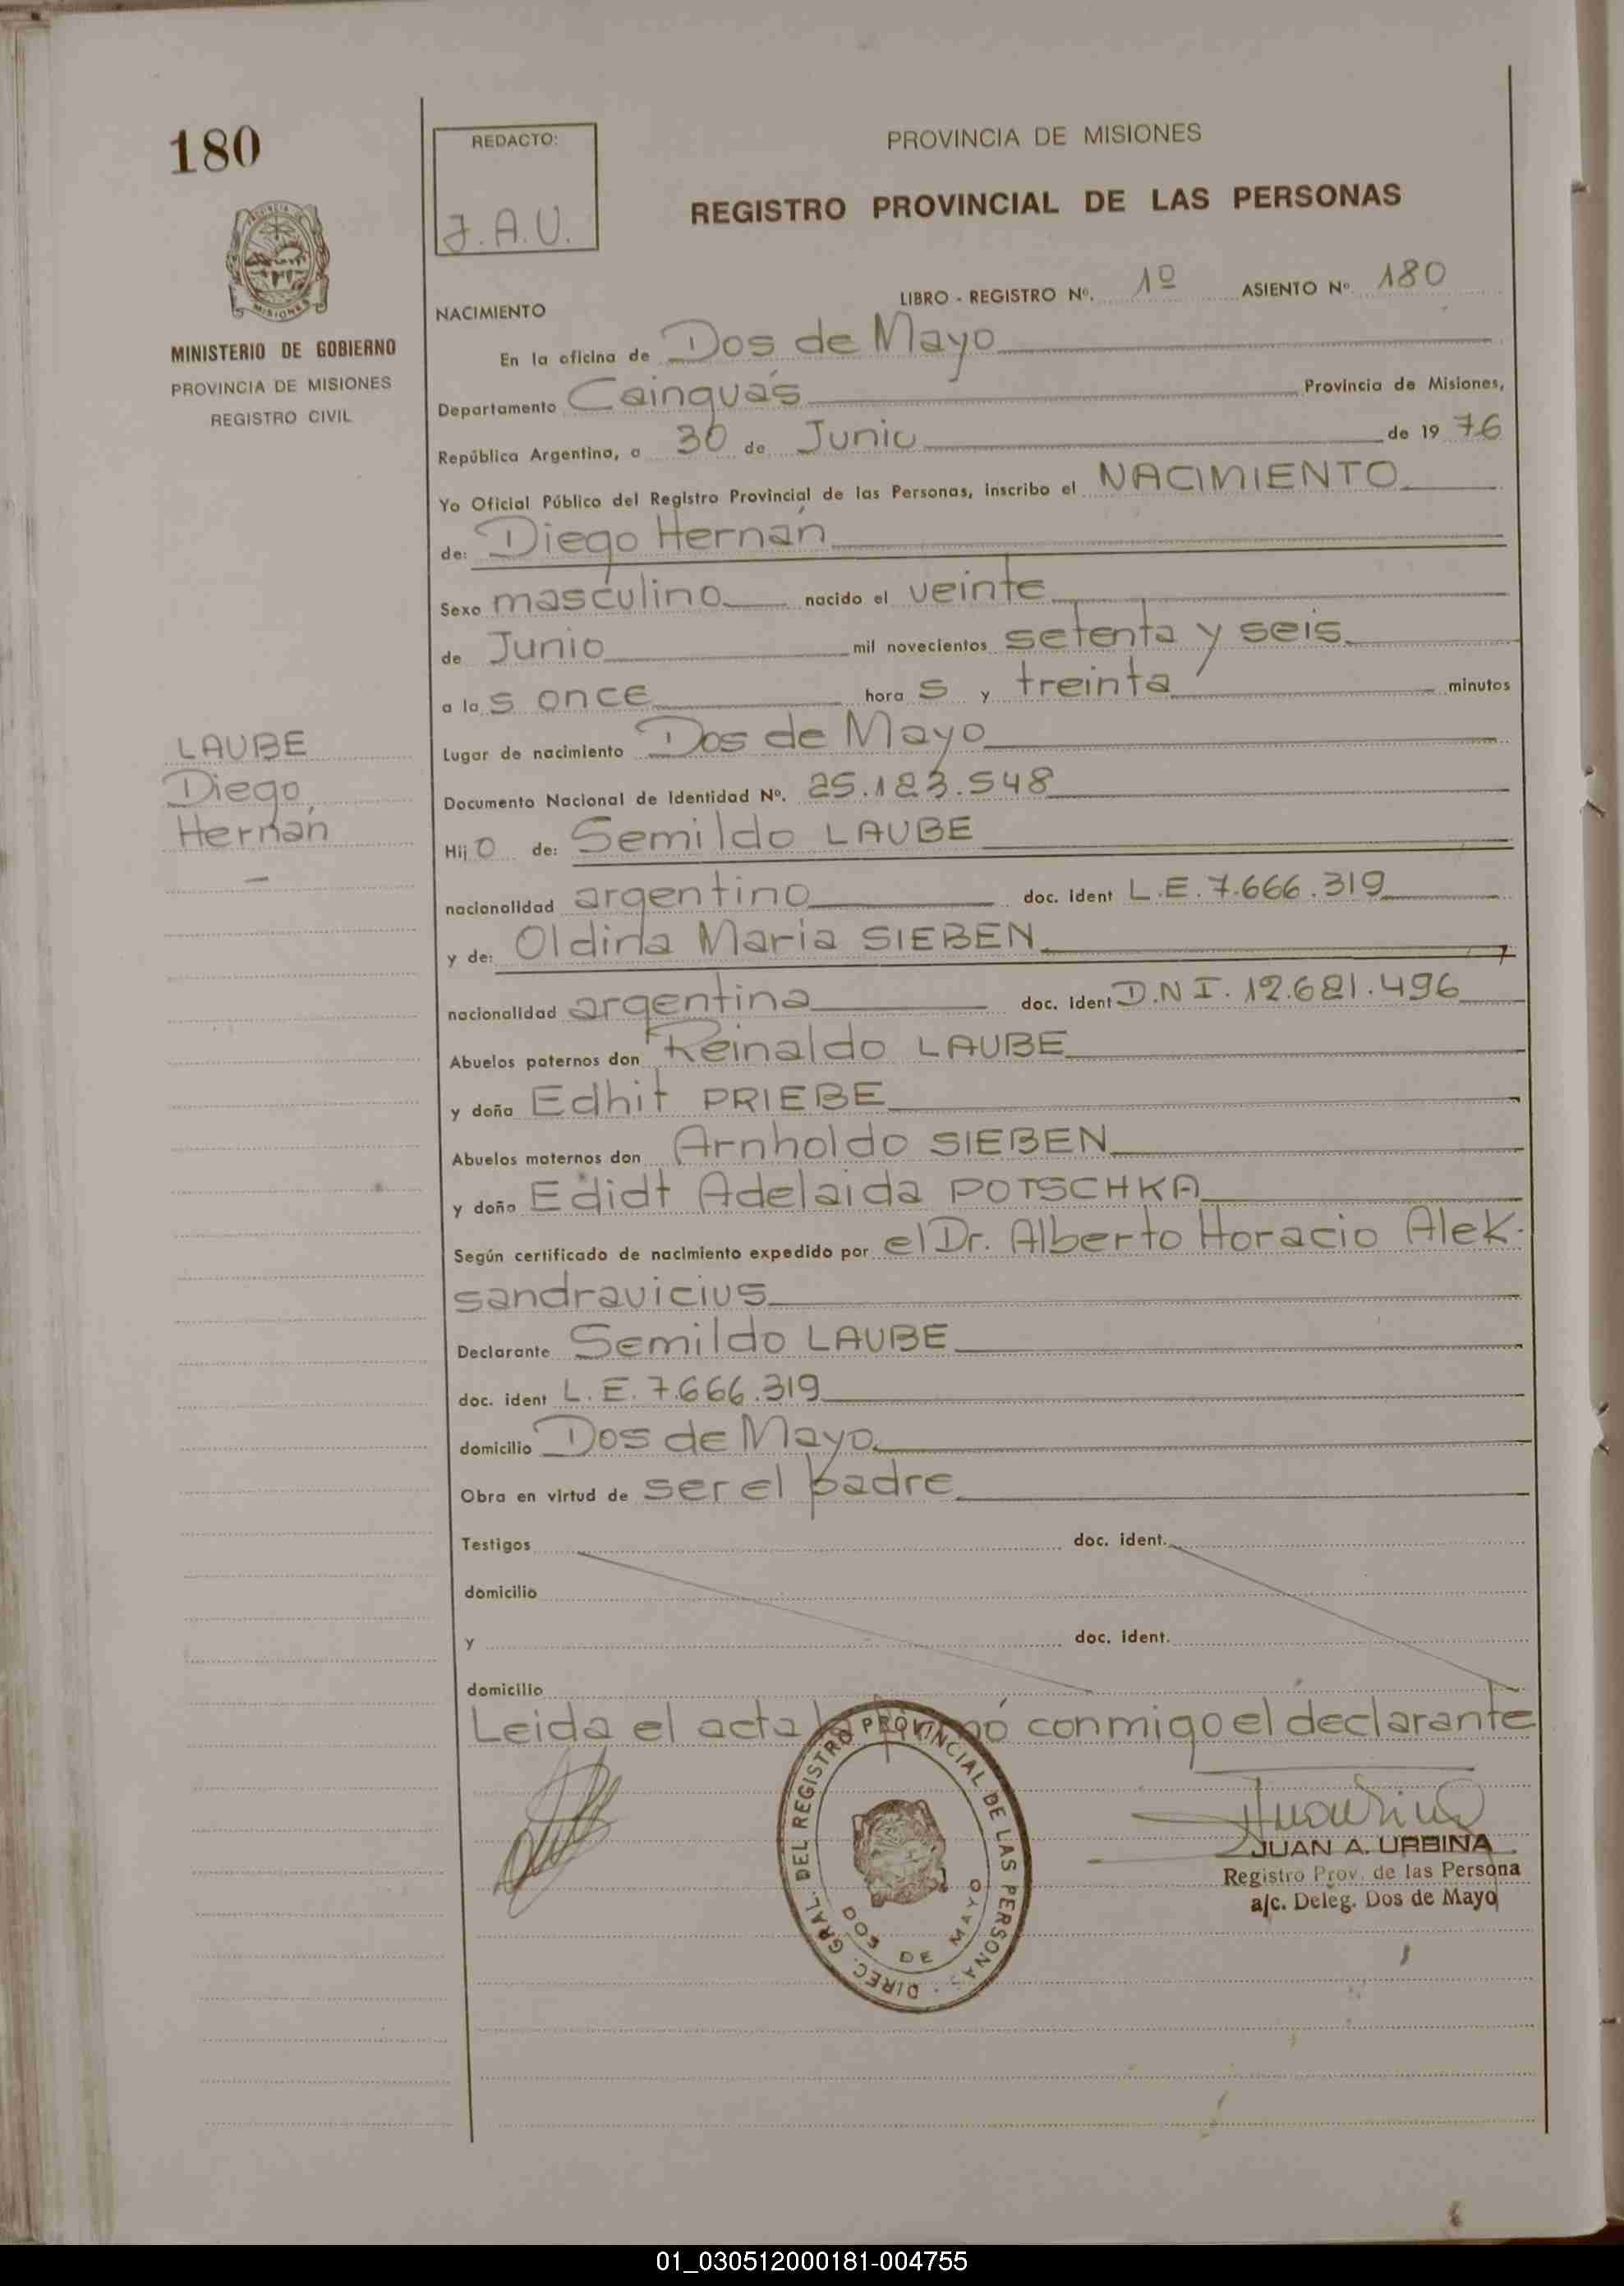 180
PROVINCIA DE
MISIONES
MINISTERIO DE GOBIERNO
PROVINCIA DE MISIONES
REGISTRO CIVIL
REDACTO:
J.A.U.
PROVINCIA DE MISIONES
REGISTRO PROVINCIAL DE LAS PERSONAS
LIBRO - REGISTRO Nº. 1º ASIENTO Nº 180
NACIMIENTO
En la oficina de Dos de Mayo
Departamento Cainguás Provincia de Misiones,
República Argentina, a 30 de Junio de 19 76
Yo Oficial Público del Registro Provincial de las Personas, inscribo el NACIMIENTO
de: Diego Hernán
Sexo masculino nacido el veinte
de Junio mil novecientos setenta y seis
a las once horas y treinta minutos
Lugar de nacimiento Dos de Mayo
LAUBE
Diego
Hernán
Documento Nacional de Identidad Nº. 25.183.548
Hijo de: Semildo LAUBE
nacionalidad argentino doc. ident L.E. 7.666.319
y de: Oldina Maria SIEBEN
nacionalidad argentina doc. ident D.N I. 12.681.496
Abuelos paternos don Reinaldo LAUBE
y doña Edhit PRIEBE
Abuelos maternos don Arnholdo SIEBEN
y doña Edidt Adelaida POTSCHKA
Según certificado de nacimiento expedido por el Dr. Alberto Horacio Alek-
sandravicius
Declarante Semildo LAUBE
doc. ident L.E. 7.666.319
domicilio Dos de Mayo
Obra en virtud de ser el padre
Testigos doc. ident.
domicilio
y doc. ident.
domicilio
Leida el acta la firmó conmigo el declarante
DIREC. GRAL. DEL REGISTRO PROVINCIAL DE LAS PERSONAS
DOS DE MAYO
JUAN A. URBINA
Registro Prov. de las Persona
a/c. Deleg. Dos de Mayo
01_030512000181-004755